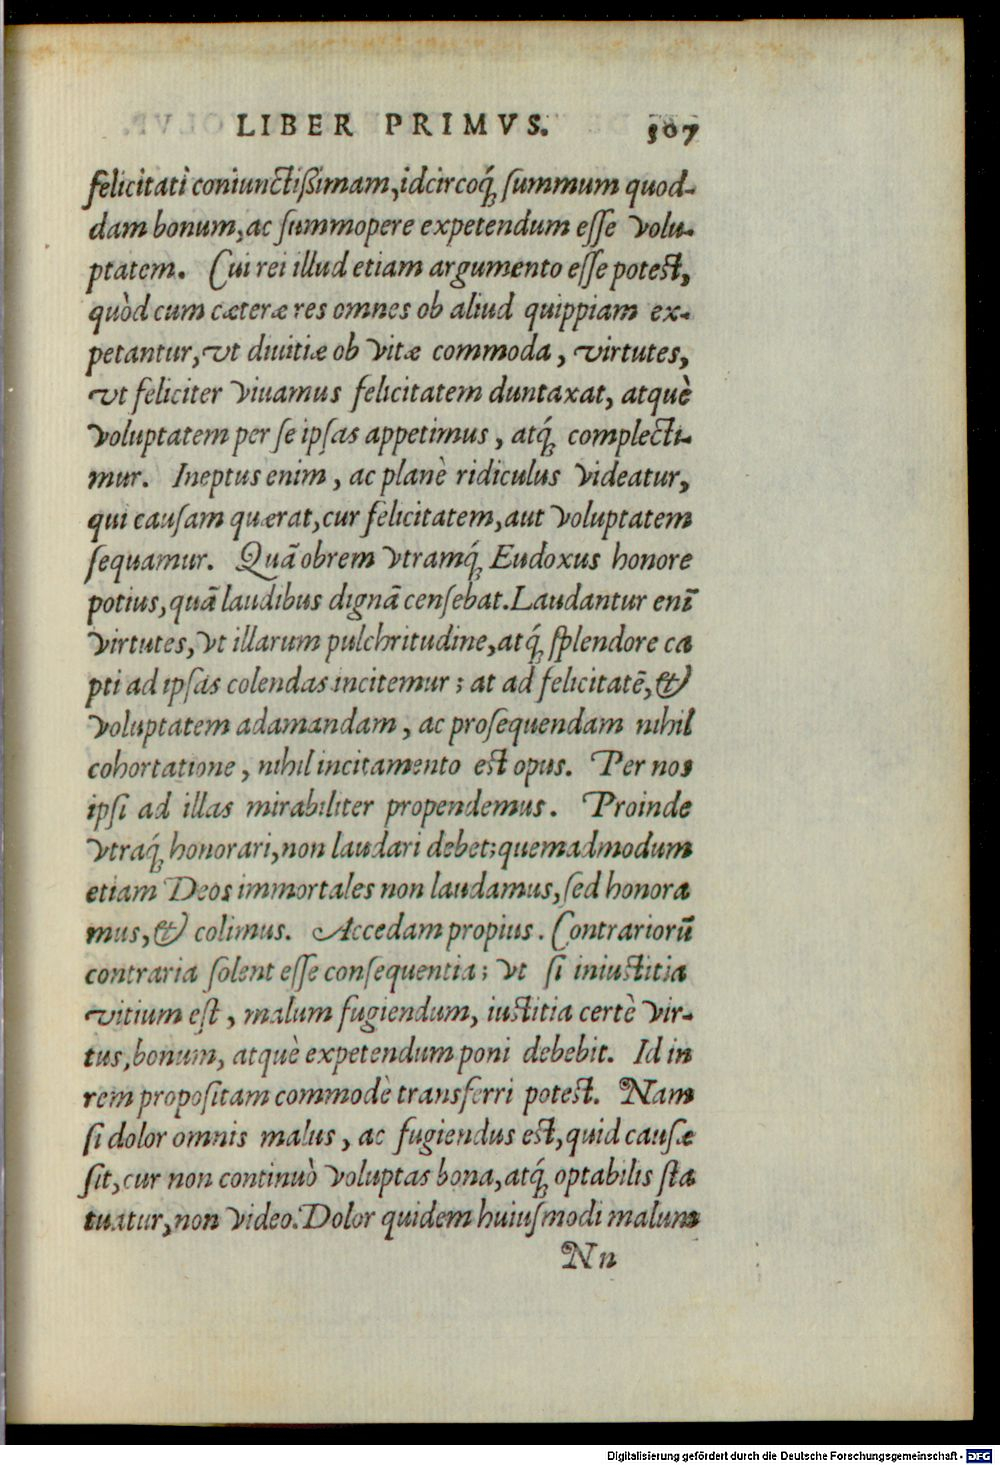 LIBER PRIMVS. 507
felicitati coniunctißimam, idcircoq́; ſummum quod-
dam bonum, ac ſummopere expetendum eſſe volu-
ptatem. Cui rei illud etiam argumento eſſe poteſt,
quòd cum cæteræ res omnes ob aliud quippiam ex-
petantur, vt diuitiæ ob vitæ commoda, virtutes,
vt feliciter viuamus felicitatem duntaxat, atquè
voluptatem per ſe ipſas appetimus, atq́; complecti-
mur. Ineptus enim, ac planè ridiculus videatur,
qui cauſam quærat, cur felicitatem, aut voluptatem
ſequamur. Quāobrem vtramq́; Eudoxus honore
potius, quā laudibus dignā cenſebat. Laudantur enī
virtutes, vt illarum pulchritudine, atq́; ſplendore ca
pti ad ipſas colendas incitemur; at ad felicitatē, &
voluptatem adamandam, ac proſequendam nihil
cohortatione, nihil incitamento eſt opus. Per nos
ipſi ad illas mirabiliter propendemus. Proinde
vtraq́; honorari, non laudari debet; quemadmodum
etiam Deos immortales non laudamus, ſed honora
mus, & colimus. Accedam propius. Contrariorū
contraria ſolent eſſe conſequentia; vt ſi iniuſtitia
vitium eſt, malum fugiendum, iuſtitia certè vir-
tus, bonum, atquè expetendum poni debebit. Id in
rem propoſitam commodè transferri poteſt. Nam
ſi dolor omnis malus, ac fugiendus eſt, quid cauſæ
ſit, cur non continuò voluptas bona, atq́; optabilis ſta
tuatur, non video. Dolor quidem huiuſmodi malum
Nn
Digitalisierung gefördert durch die Deutsche Forschungsgemeinschaft - DFG